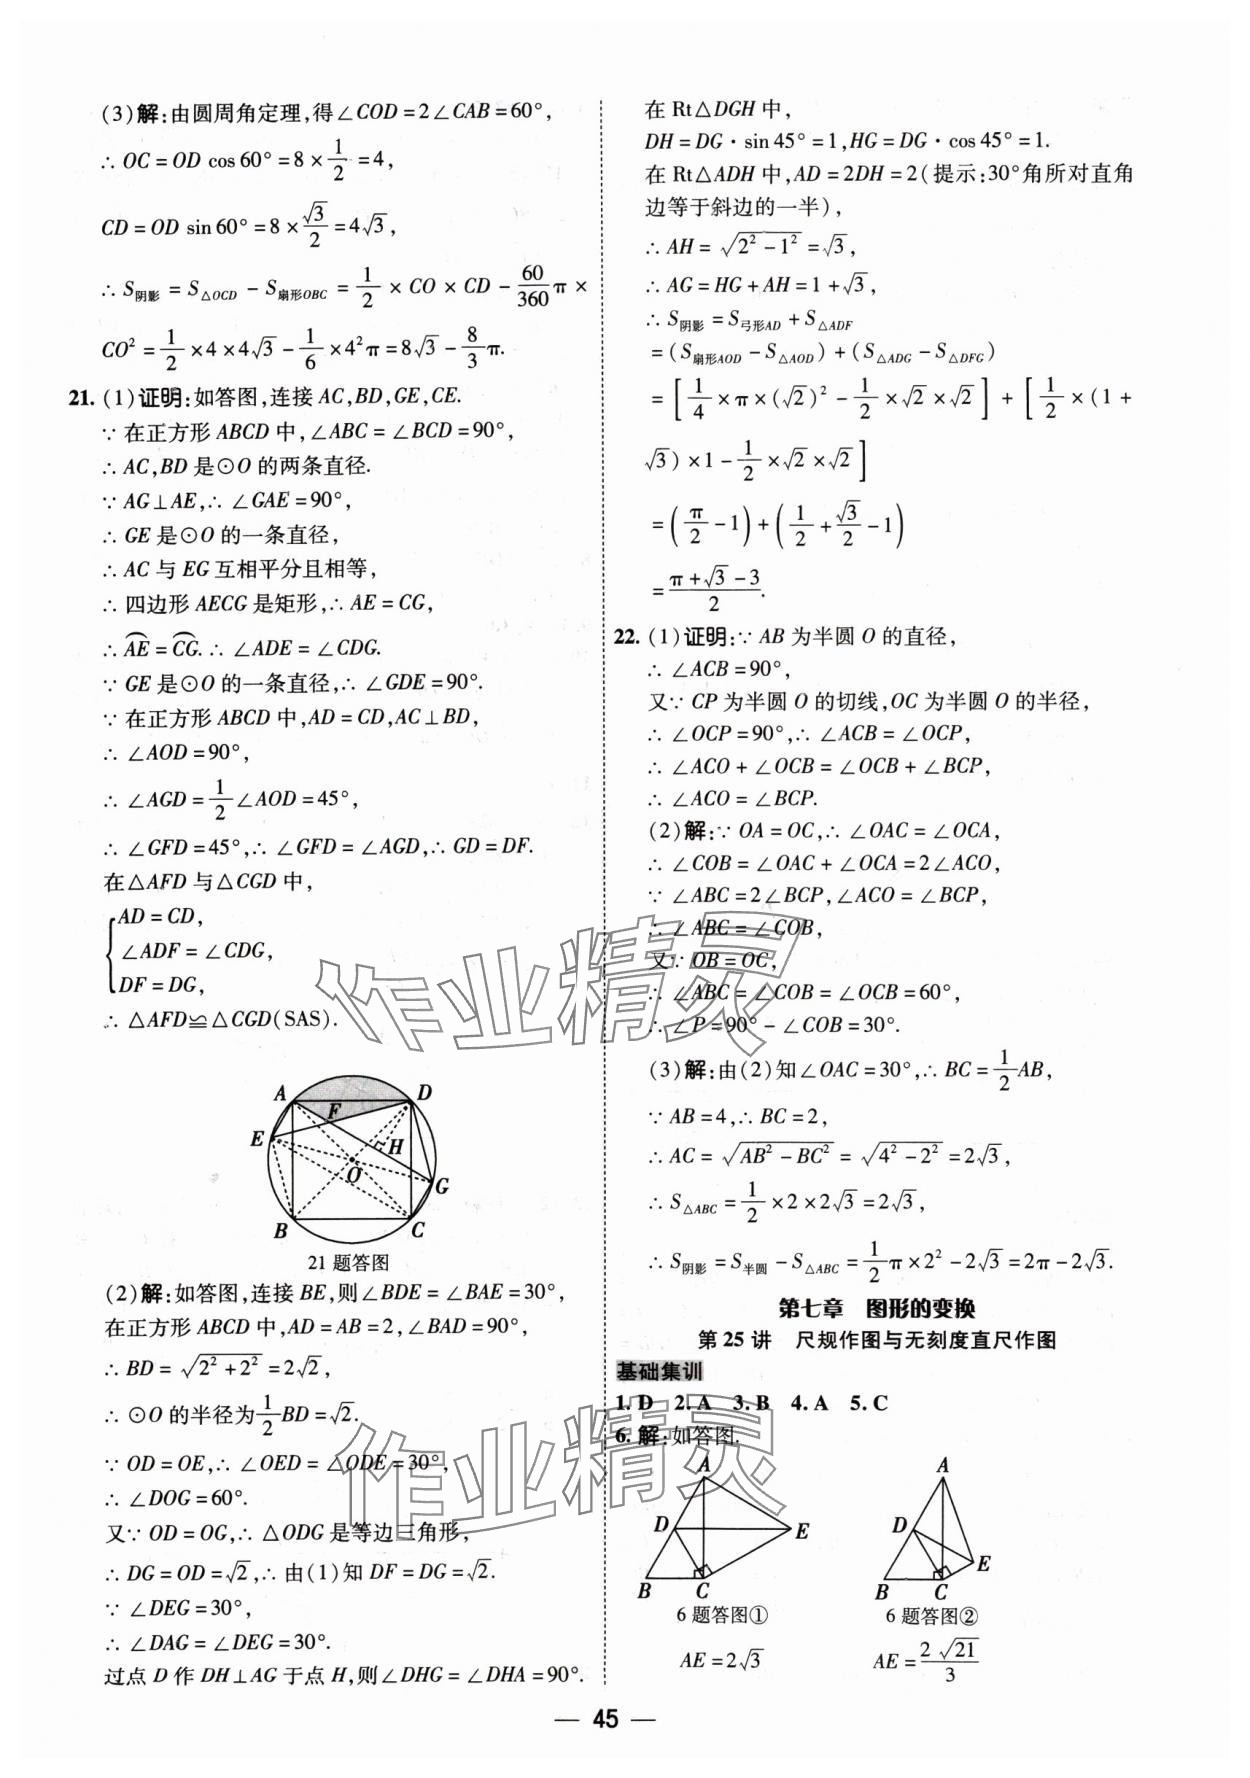 (3)解:由圆周角定理,得∠COD=2∠CAB=60°,
∴ OC=OD cos 60°=8×1/2=4,
CD=OD sin 60°=8×√3/2=4√3,
∴ S阴影=S△OCD-S扇形OBC=1/2×CO×CD-60/360π×
CO²=1/2×4×4√3-1/6×4²π=8√3-8/3π.
21. (1)证明:如答图,连接AC,BD,GE,CE.
∵ 在正方形ABCD中,∠ABC=∠BCD=90°,
∴ AC,BD是⊙O的两条直径.
∵ AG⊥AE,∴ ∠GAE=90°,
∴ GE是⊙O的一条直径,
∴ AC与EG互相平分且相等,
∴ 四边形AECG是矩形,∴ AE=CG,
∴ ⌒AE=⌒CG.∴ ∠ADE=∠CDG.
∵ GE是⊙O的一条直径,∴ ∠GDE=90°.
∵ 在正方形ABCD中,AD=CD,AC⊥BD,
∴ ∠AOD=90°,
∴ ∠AGD=1/2∠AOD=45°,
∴ ∠GFD=45°,∴ ∠GFD=∠AGD,∴ GD=DF.
在△AFD与△CGD中,
{AD=CD,
∠ADF=∠CDG,
DF=DG,
∴ △AFD≌△CGD(SAS).
A D F E H O G B C
21题答图
(2)解:如答图,连接BE,则∠BDE=∠BAE=30°,
在正方形ABCD中,AD=AB=2,∠BAD=90°,
∴ BD=√(2²+2²)=2√2,
∴ ⊙O的半径为1/2BD=√2.
∵ OD=OE,∴ ∠OED=∠ODE=30°,
∴ ∠DOG=60°.
又∵ OD=OG,∴ △ODG是等边三角形,
∴ DG=OD=√2,∴ 由(1)知DF=DG=√2.
∵ ∠DEG=30°,
∴ ∠DAG=∠DEG=30°.
过点D作DH⊥AG于点H,则∠DHG=∠DHA=90°.
在Rt△DGH中,
DH=DG·sin 45°=1,HG=DG·cos 45°=1.
在Rt△ADH中,AD=2DH=2(提示:30°角所对直角
边等于斜边的一半),
∴ AH=√(2²-1²)=√3,
∴ AG=HG+AH=1+√3,
∴ S阴影=S弓形AD+S△ADF
=(S扇形AOD-S△AOD)+(S△ADG-S△DFG)
=[1/4×π×(√2)²-1/2×√2×√2]+[1/2×(1+
√3)×1-1/2×√2×√2]
=(π/2-1)+(1/2+√3/2-1)
=(π+√3-3)/2.
22. (1)证明:∵ AB为半圆O的直径,
∴ ∠ACB=90°,
又∵ CP为半圆O的切线,OC为半圆O的半径,
∴ ∠OCP=90°,∴ ∠ACB=∠OCP,
∴ ∠ACO+∠OCB=∠OCB+∠BCP,
∴ ∠ACO=∠BCP.
(2)解:∵ OA=OC,∴ ∠OAC=∠OCA,
∴ ∠COB=∠OAC+∠OCA=2∠ACO,
∵ ∠ABC=2∠BCP,∠ACO=∠BCP,
∴ ∠ABC=∠COB,
又∵ OB=OC,
∴ ∠ABC=∠COB=∠OCB=60°,
∴ ∠P=90°-∠COB=30°.
(3)解:由(2)知∠OAC=30°,∴ BC=1/2AB,
∵ AB=4,∴ BC=2,
∴ AC=√(AB²-BC²)=√(4²-2²)=2√3,
∴ S△ABC=1/2×2×2√3=2√3,
∴ S阴影=S半圆-S△ABC=1/2π×2²-2√3=2π-2√3.
第七章 图形的变换
第25讲 尺规作图与无刻度直尺作图
基础集训
1. D 2. A 3. B 4. A 5. C
6. 解:如答图.
A D E B C
A D E B C
6题答图① 6题答图②
AE=2√3 AE=2√21/3
作业精灵
作业精灵
— 45 —